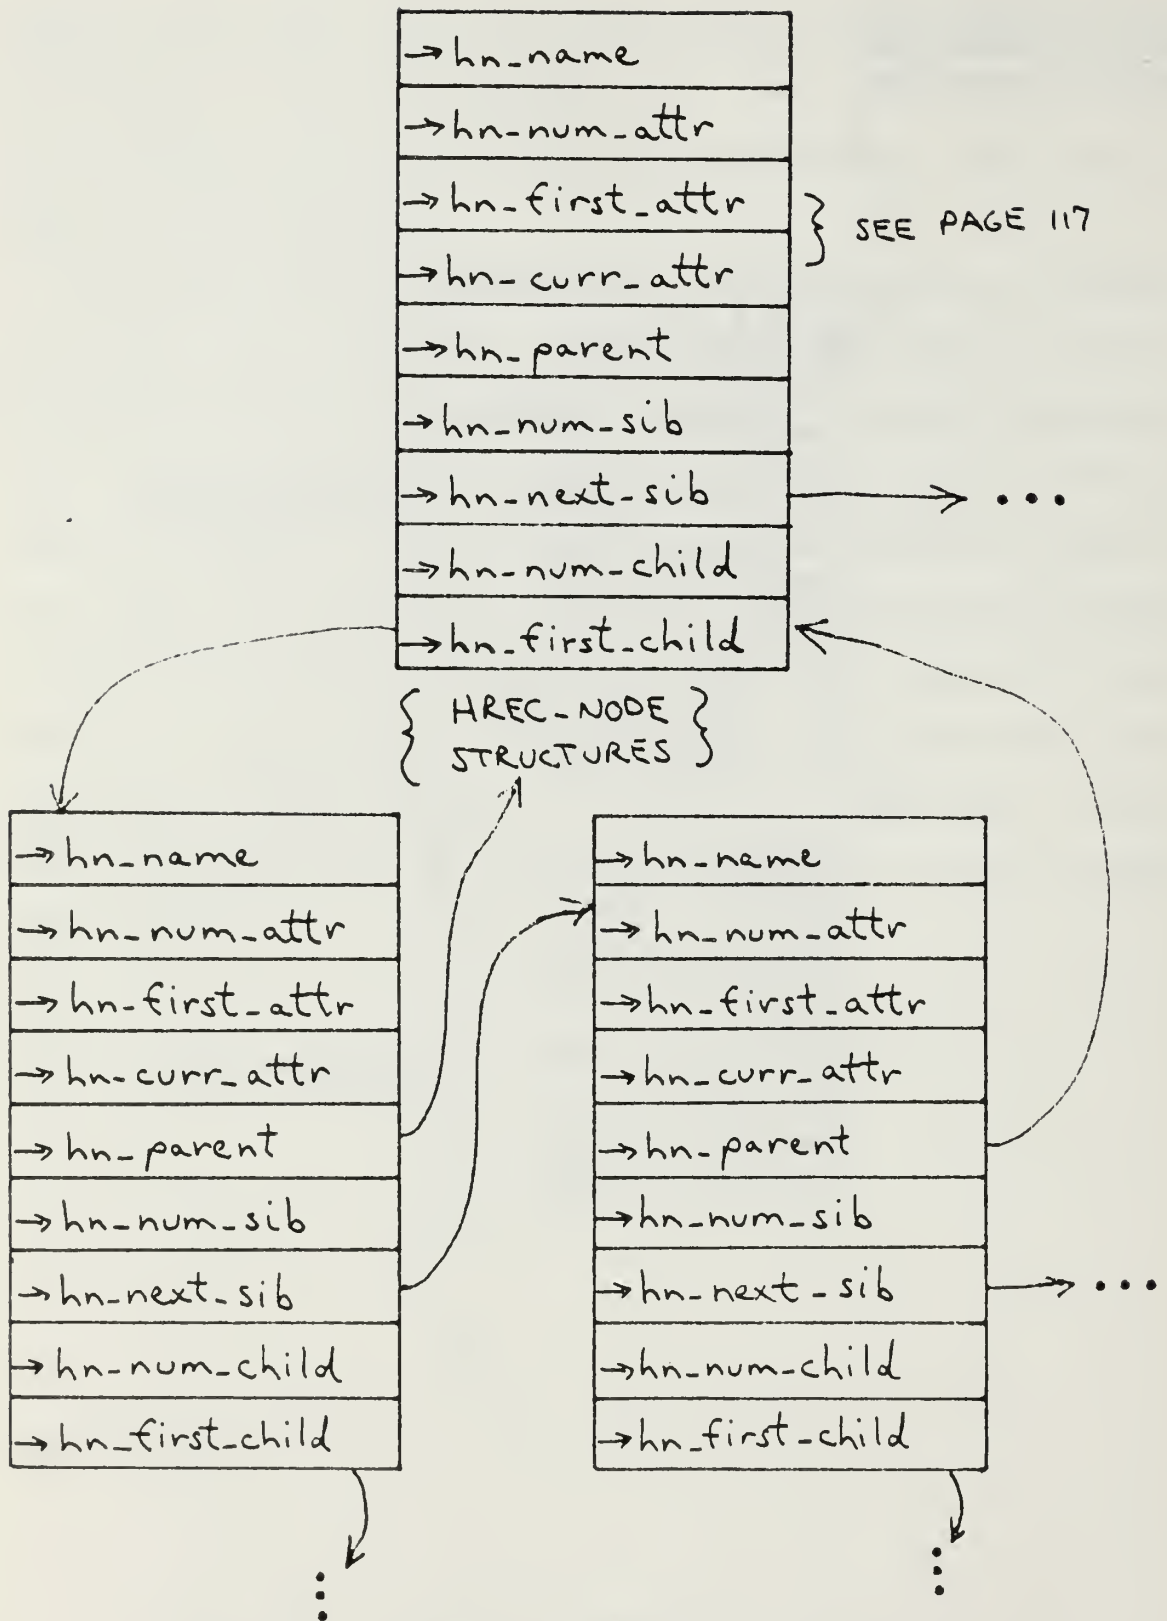 →hn_name
→hn_num_attr
→hn_first_attr
→hn_curr_attr
} SEE PAGE 117
→hn_parent
→hn_num_sib
→hn_next_sib
• • •
→hn_num_child
→hn_first_child
{ HREC_NODE }
{ STRUCTURES }
→hn_name
→hn_num_attr
→hn_first_attr
→hn_curr_attr
→hn_parent
→hn_num_sib
→hn_next_sib
→hn_num_child
→hn_first_child
→hn_name
→hn_num_attr
→hn_first_attr
→hn_curr_attr
→hn_parent
→hn_num_sib
→hn_next_sib
• • •
→hn_num_child
→hn_first_child